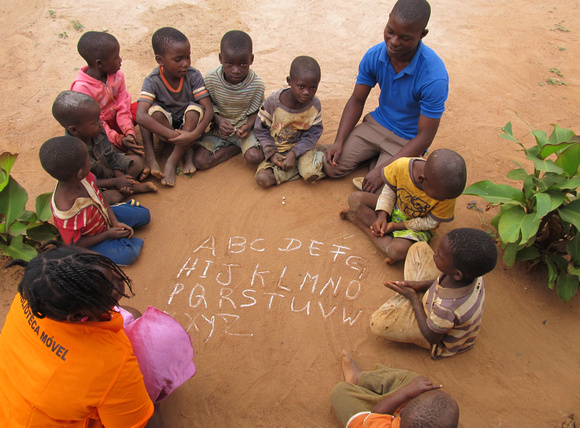 ABCDEFG
HIJKLMNO
PQRSTUVW
XYZ
BIBLIOTECA MÓVEL